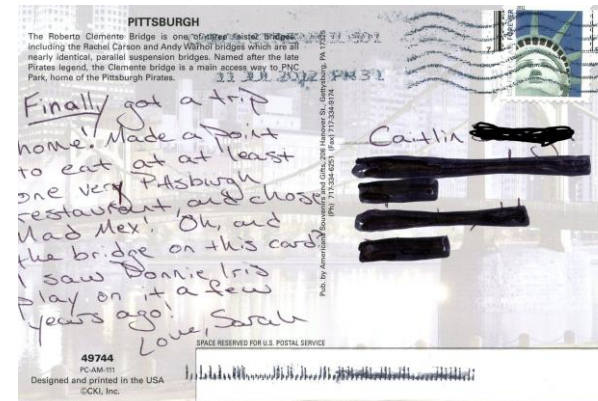 PITTSBURGH
The Roberto Clemente Bridge is one of three "sister bridges,"
including the Rachel Carson and Andy Warhol bridges which are all
nearly identical, parallel suspension bridges. Named after the late
Pirates legend, the Clemente bridge is a main access way to PNC
Park, home of the Pittsburgh Pirates.
11 JUL 2012 PM 3 L
Finally got a trip
home! Made a point
to eat at at least
one very Pittsburgh
restaurant, and chose
Mad Mex! Oh, and
the bridge on this card?
I saw Donnie Iris
play on it a few
years ago!
Love, Sarah
Pub. by Americana Souvenirs and Gifts, 206 Hanover St., Gettysburg, PA 17325
(Ph) 717-334-6251, (Fax) 717-334-9174
FOREVER
Caitlin
SPACE RESERVED FOR U.S. POSTAL SERVICE
49744
PC-AM-111
Designed and printed in the USA
©CKI, Inc.